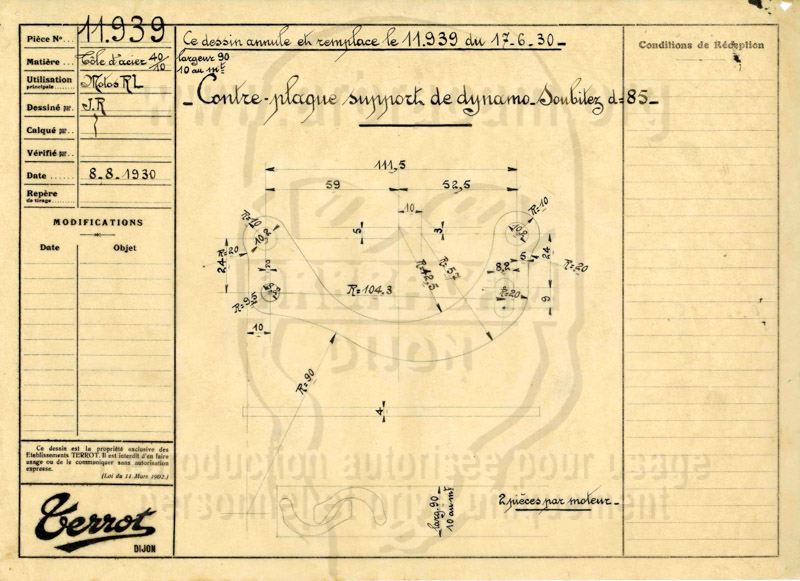 Pièce No... 11.939
Matière... Tôle d'acier 40/10
largeur 90
10 au mt
Utilisation
principale..... Motos RL
Dessiné par... J.R
Calqué par..
Vérifié par...
Date ...... 8.8.1930
Repère
de tirage......
MODIFICATIONS
Date Objet
Ce dessin est la propriété exclusive des
Etablissements TERROT. Il est interdit d'en faire
usage ou de le communiquer sans autorisation
expresse.
(Loi du 11 Mars 1902.)
Terrot
DIJON
Ce dessin annule et remplace le 11.939 du 17-6-30_
_Contre-plaque support de dynamo_Soubitez d=85_
111,5
59 52,5
10
R=10 R=10
10,2 5 3 10,2
R=20 24 5 24
8,2 R=20
R=57
R=42,5
R=104,3
R=9,5 R=20 9
10
R=90
4
larg. 90
10 au mt
2 pièces par moteur_
Conditions de Réception
DIJON
Reproduction autorisée pour usage
personnel et privé uniquement